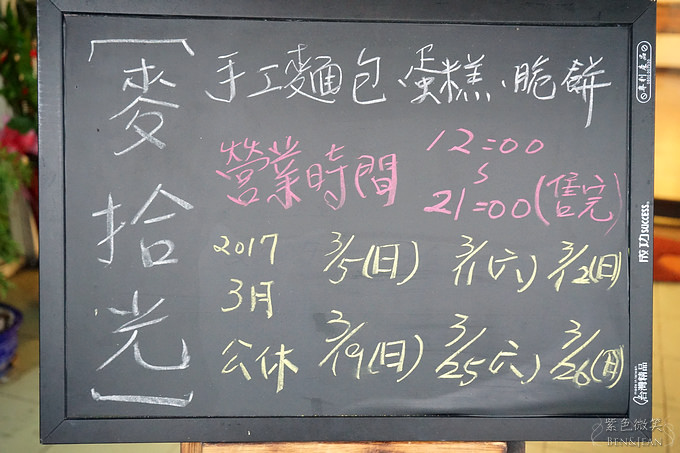 [麥拾光]
手工麵包、蛋糕、脆餅
營業時間 12:00
~
21:00(售完)
2017 3/5(日) 3/11(六) 3/12(日)
3月
公休 3/19(日) 3/25(六) 3/26(日)
成功 SUCCESS.
台灣精品
紫色微笑
BEN&JEAN